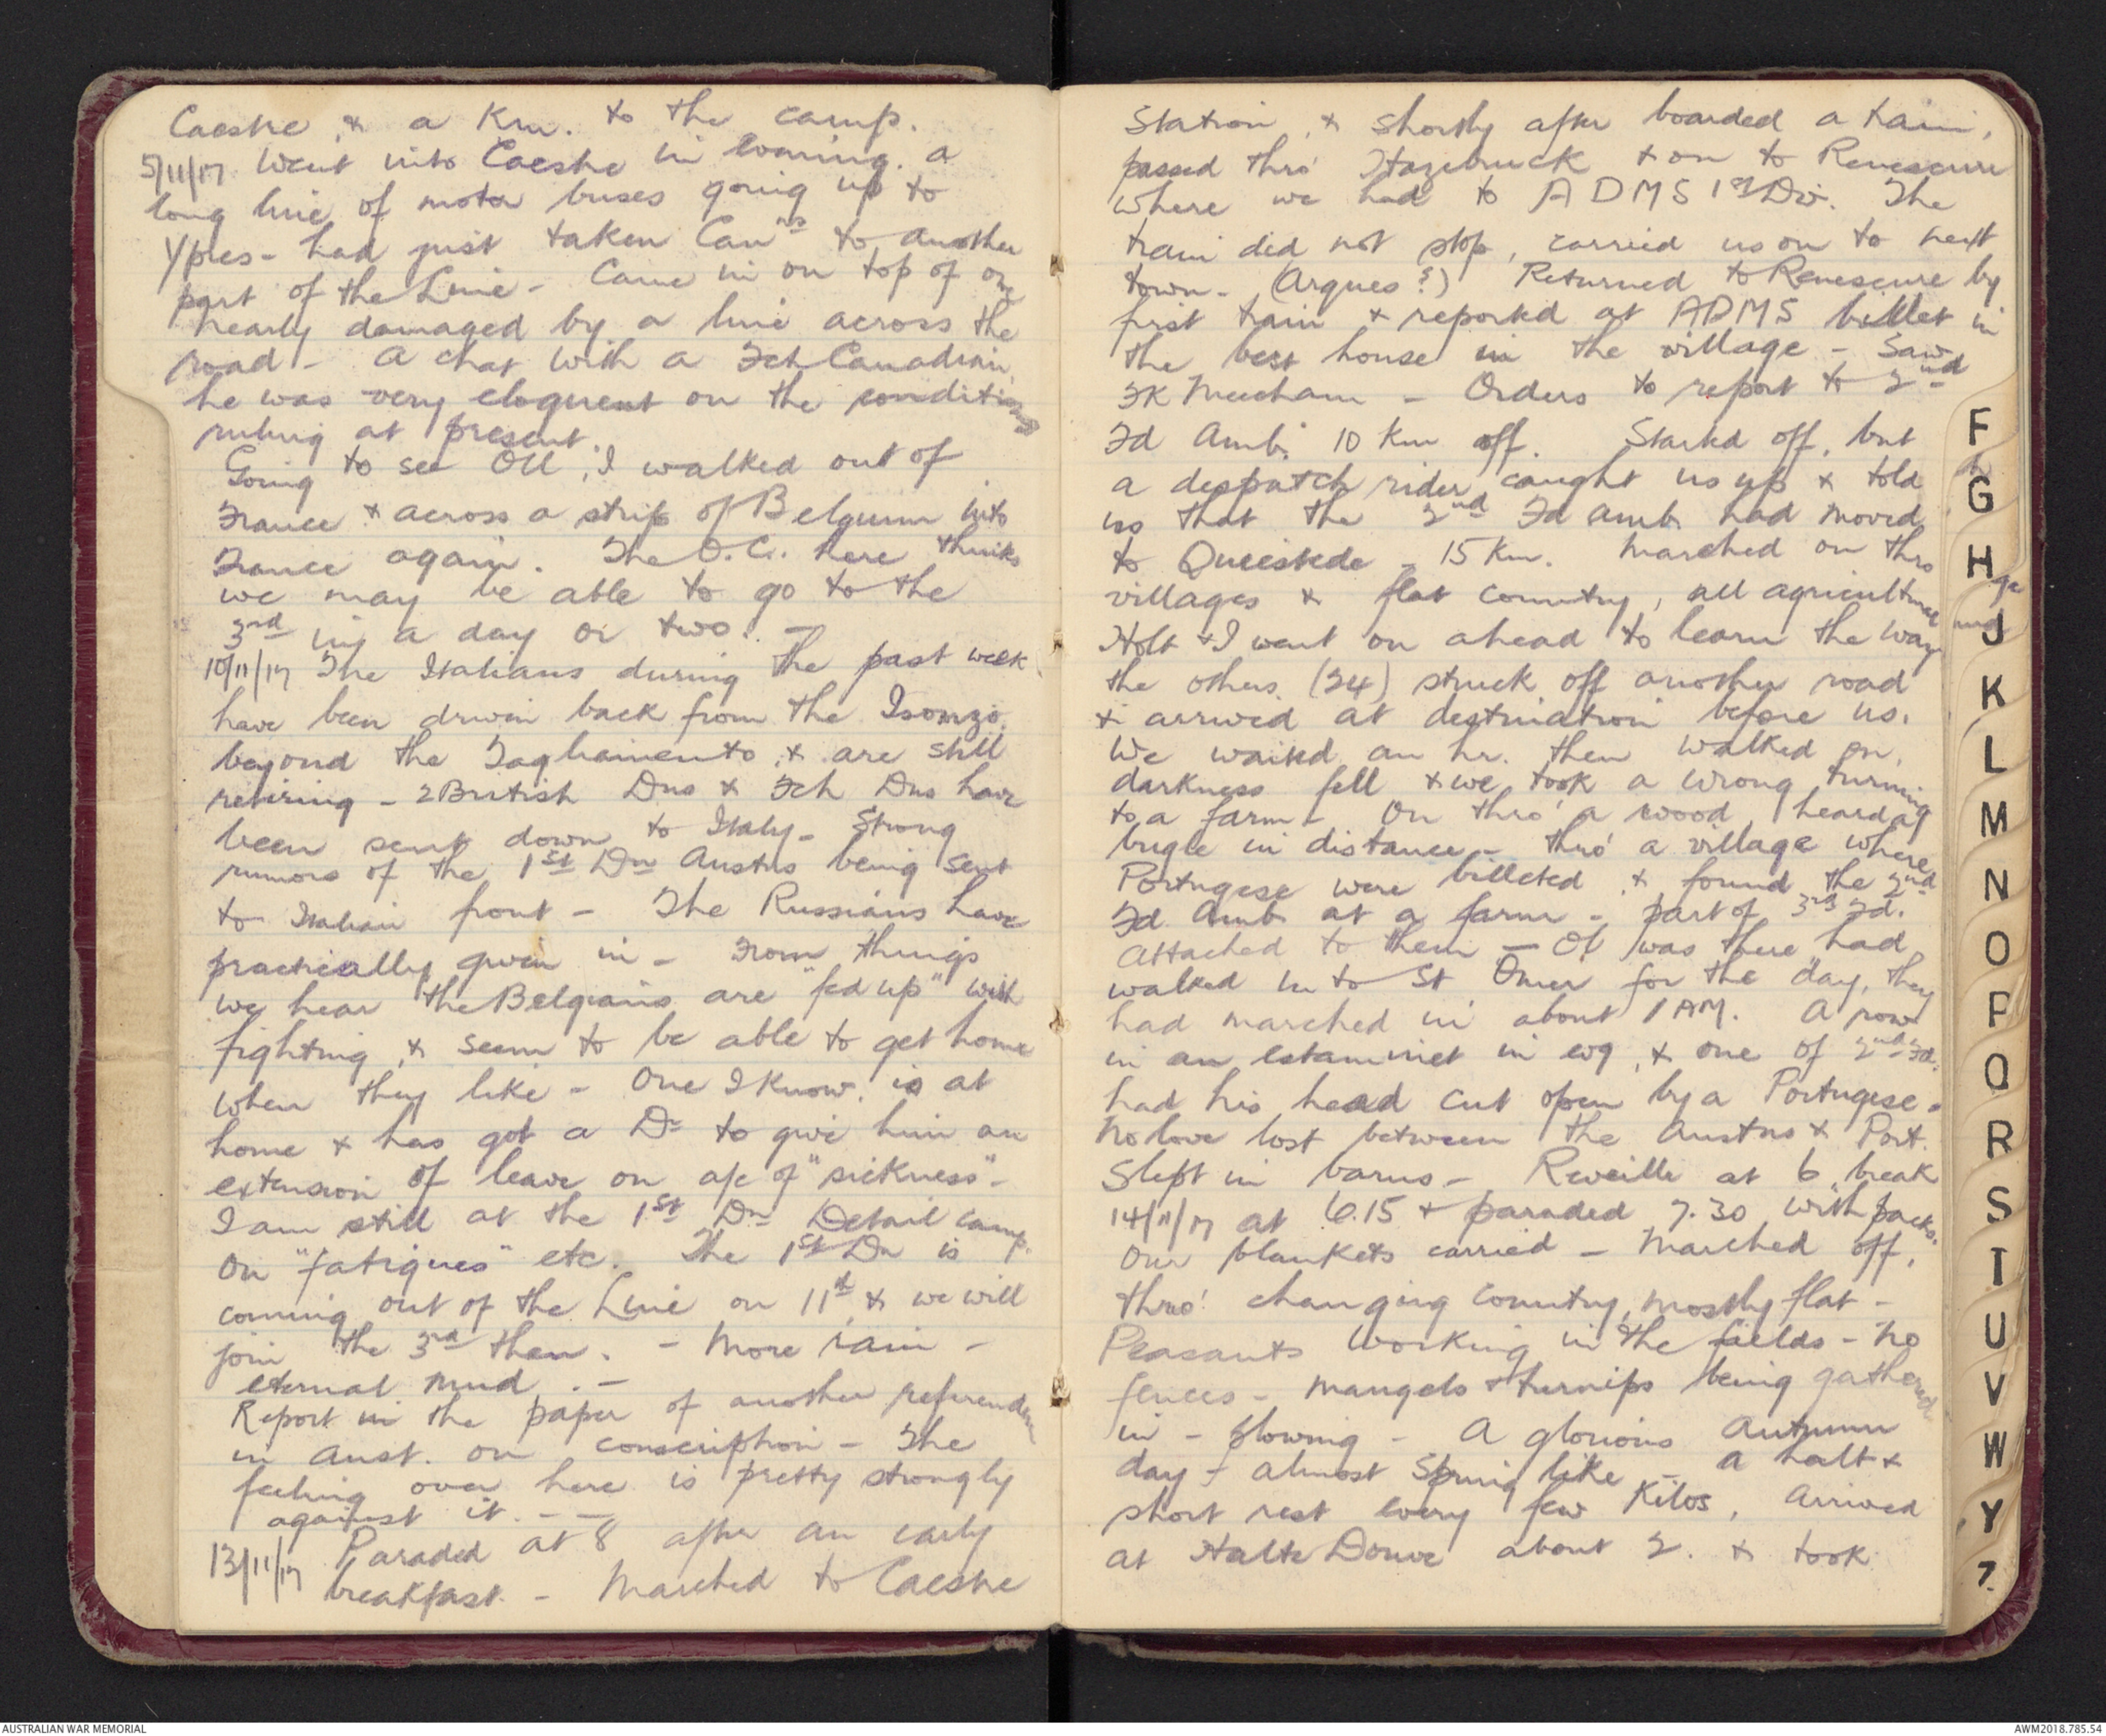 Caestre, & a Km. to the camp.
5/11/17 Went into Caestre in evening. a
long line of motor buses going up to
Ypres - had just taken Canns to another
part of the Line - Came in on top of one
nearly damaged by a line across the
road - A chat with a Fch Canadian,
he was very eloquent on the conditions
ruling at present.
Going to see Oll, I walked out of
France & across a strip of Belgium into
France again. The O.C. here thinks
we may be able to go to the
3rd in a day or two. -
10/11/17 The Italians during the past week
have been driven back from the Isonzo
beyond the Tagliamento, & are still
retiring - 2 British Dns & Fch Dns have
been sent down to Italy - Strong
rumors of the 1st Dn Austns being sent
to Italian front - The Russians have
practically given in - From things
we hear the Belgians are "fed up" with
fighting, & seem to be able to get home
when they like - One I know, is at
home & has got a Dr to give him an
extension of leave on a/c of "sickness" -
I am still at the 1st Dn Detail camp
on "fatigues" etc. The 1st Dn is
coming out of the Line on 11th, & we will
join the 3rd then. - More rain -
eternal mud. -
Report in the paper of another referendum
in Aust. on conscription - The
feeling over here is pretty strongly
against it. - -
13/11/17 Paraded at 8 after an early
breakfast. - Marched to Caestre
Station, & shortly after boarded a train,
passed thro' Hazebruck & on to Renescure
where we had to ADMS 1st Div. The
train did not stop, carried us on to next
town - (Arques?) Returned to Renescure by
first train & reported at ADMS billet in
the best house in the village - Saw
FK Meecham - Orders to report to 2nd
Fd Amb. 10 Km off. Started off, but
a despatch rider caught us up & told
us that the 2nd Fd Amb. had moved
to Queistede - 15 Km. Marched on thro
villages & flat country, all agricultural
Holt & I went on ahead to learn the way
the others (24) struck off another road
& arrived at destination before us.
We waited an hr. then walked on,
darkness fell & we took a wrong turning
to a farm - On thro' a wood, heard a
bugle in distance - thro' a village where
Portugese were billeted, & found the 2nd
Fd Amb. at a farm - part of 3rd Fd.
attached to them - Ol was there, had
walked in to St Omer for the day, they
had marched in about 1 AM. A row
in an estaminet in evg, & one of 2nd Fd.
had his head cut open by a Portugese -
No love lost between the Austns & Port.
Slept in barns - Reveille at 6, break
14/11/17 at 6.15 & paraded 7.30 with packs.
Our blankets carried - Marched off,
thro' changing country, mostly flat -
Peasants working in the fields - no
fences - mangels & turnips being gathered
in - plowing - A glorious Autumn
day - almost Spring like - a halt &
short rest every few Kilos, Arrived
at Halte Douve about 2. & took
F
G
H
J
K
L
M
N
O
P
Q
R
S
T
U
V
W
Y
Z
AUSTRALIAN WAR MEMORIAL
AWM2018.785.54